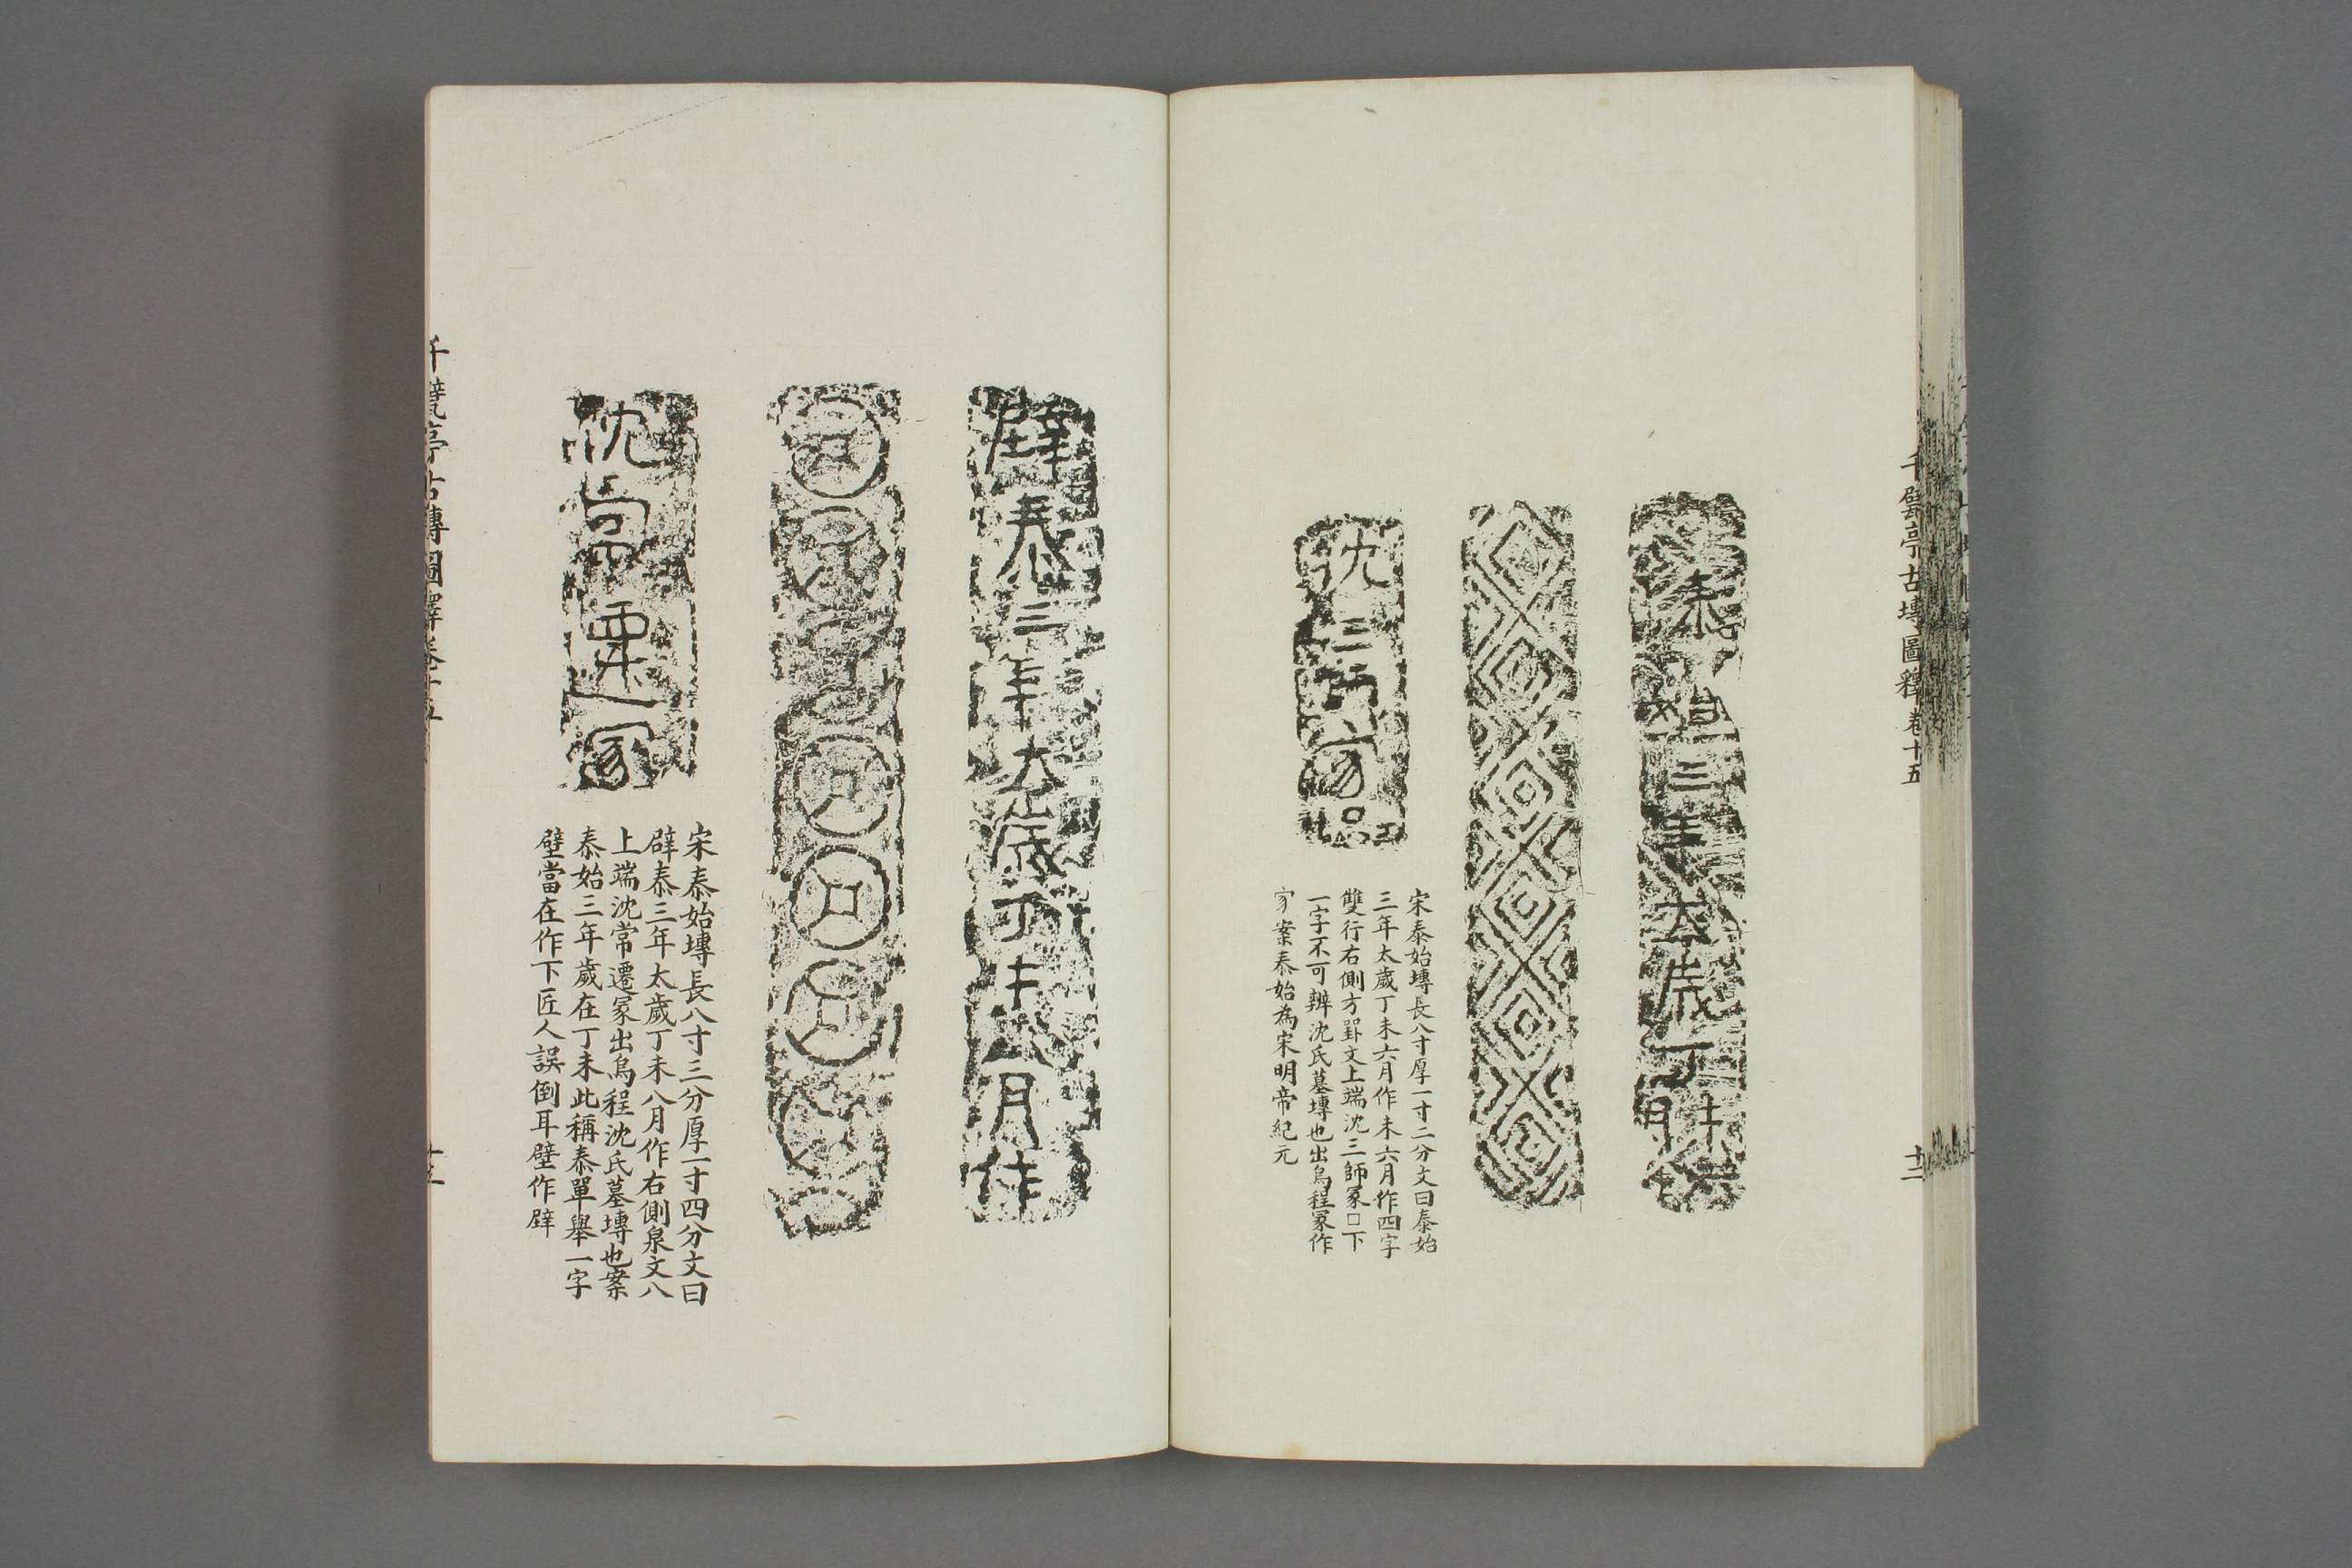 千甓亭古塼圖釋卷十五
十二
泰始三年太歲丁未
六月作
沈三師冢
宋泰始塼長八寸厚一寸二分文曰泰始
三年太歲丁未六月作未六月作四字
雙行右側方罫文上端沈三師冢□下
一字不可辨沈氏墓塼也出烏程冢作
家案泰始為宋明帝紀元
辟泰三年太歲丁未八月作
沈常遷冢
宋泰始塼長八寸三分厚一寸四分文曰
辟泰三年太歲丁未八月作右側泉文八
上端沈常遷冢出烏程沈氏墓塼也案
泰始三年歲在丁未此稱泰單舉一字
壁當在作下匠人誤倒耳壁作辟
千甓亭古塼圖釋卷十五